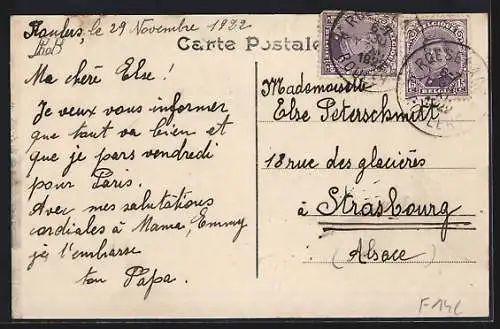 Roulers, le 29 Novembre 1922
Carte Postale
Ma chère Else!
Je veux vous informer
que tout va bien et
que je pars vendredi
pour Paris.
Avec mes salutations
cordiales à Mama, Emmy
je t'embrasse
ton Papa.
Mademoiselle
Else Peterschmitt
18 rue des glacières
à Strasbourg
(Alsace)
F14L